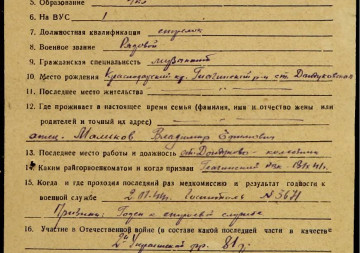 5. Образование
6. На ВУС 1
7. Должностная квалификация стрелок
8. Военное звание Рядовой
9. Гражданская специальность музыкант
10. Место рождения Краснодарский кр. Гиагинский р-н ст. Дондуковская
11. Последнее место жительства
12. Где проживает в настоящее время семья (фамилия, имя и отчество жены или
родителей и точный их адрес)
отец - Владимир
13. Последнее место работы и должность ст. Дондуков.
14. Каким райгорвоенкоматом и когда призван Гиагинский
15. Когда и где проходил последний раз медкомиссию и результат годности к
военной службе Госпиталь № 3671
Годен к строевой службе
16. Участие в Отечественной войне (в составе какой последней части и качестве
2й Украинский фр.